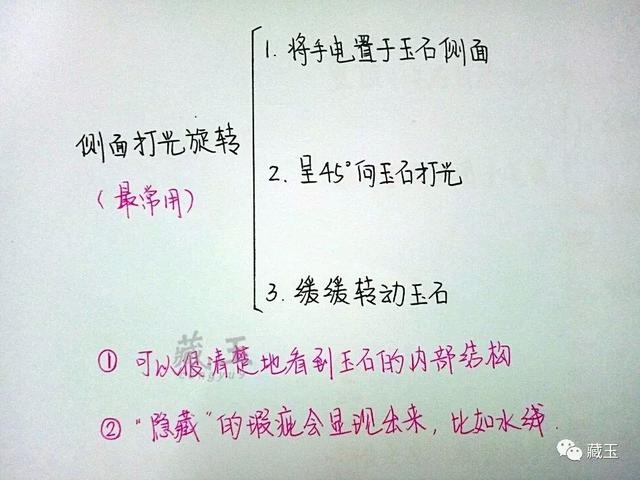 1. 将手电置于玉石侧面
侧面打光旋转
(最常用)
2. 呈45°向玉石打光
3. 缓缓转动玉石
藏玉
① 可以很清楚地看到玉石的内部结构
② "隐藏"的瑕疵会显现出来，比如水线.
藏玉